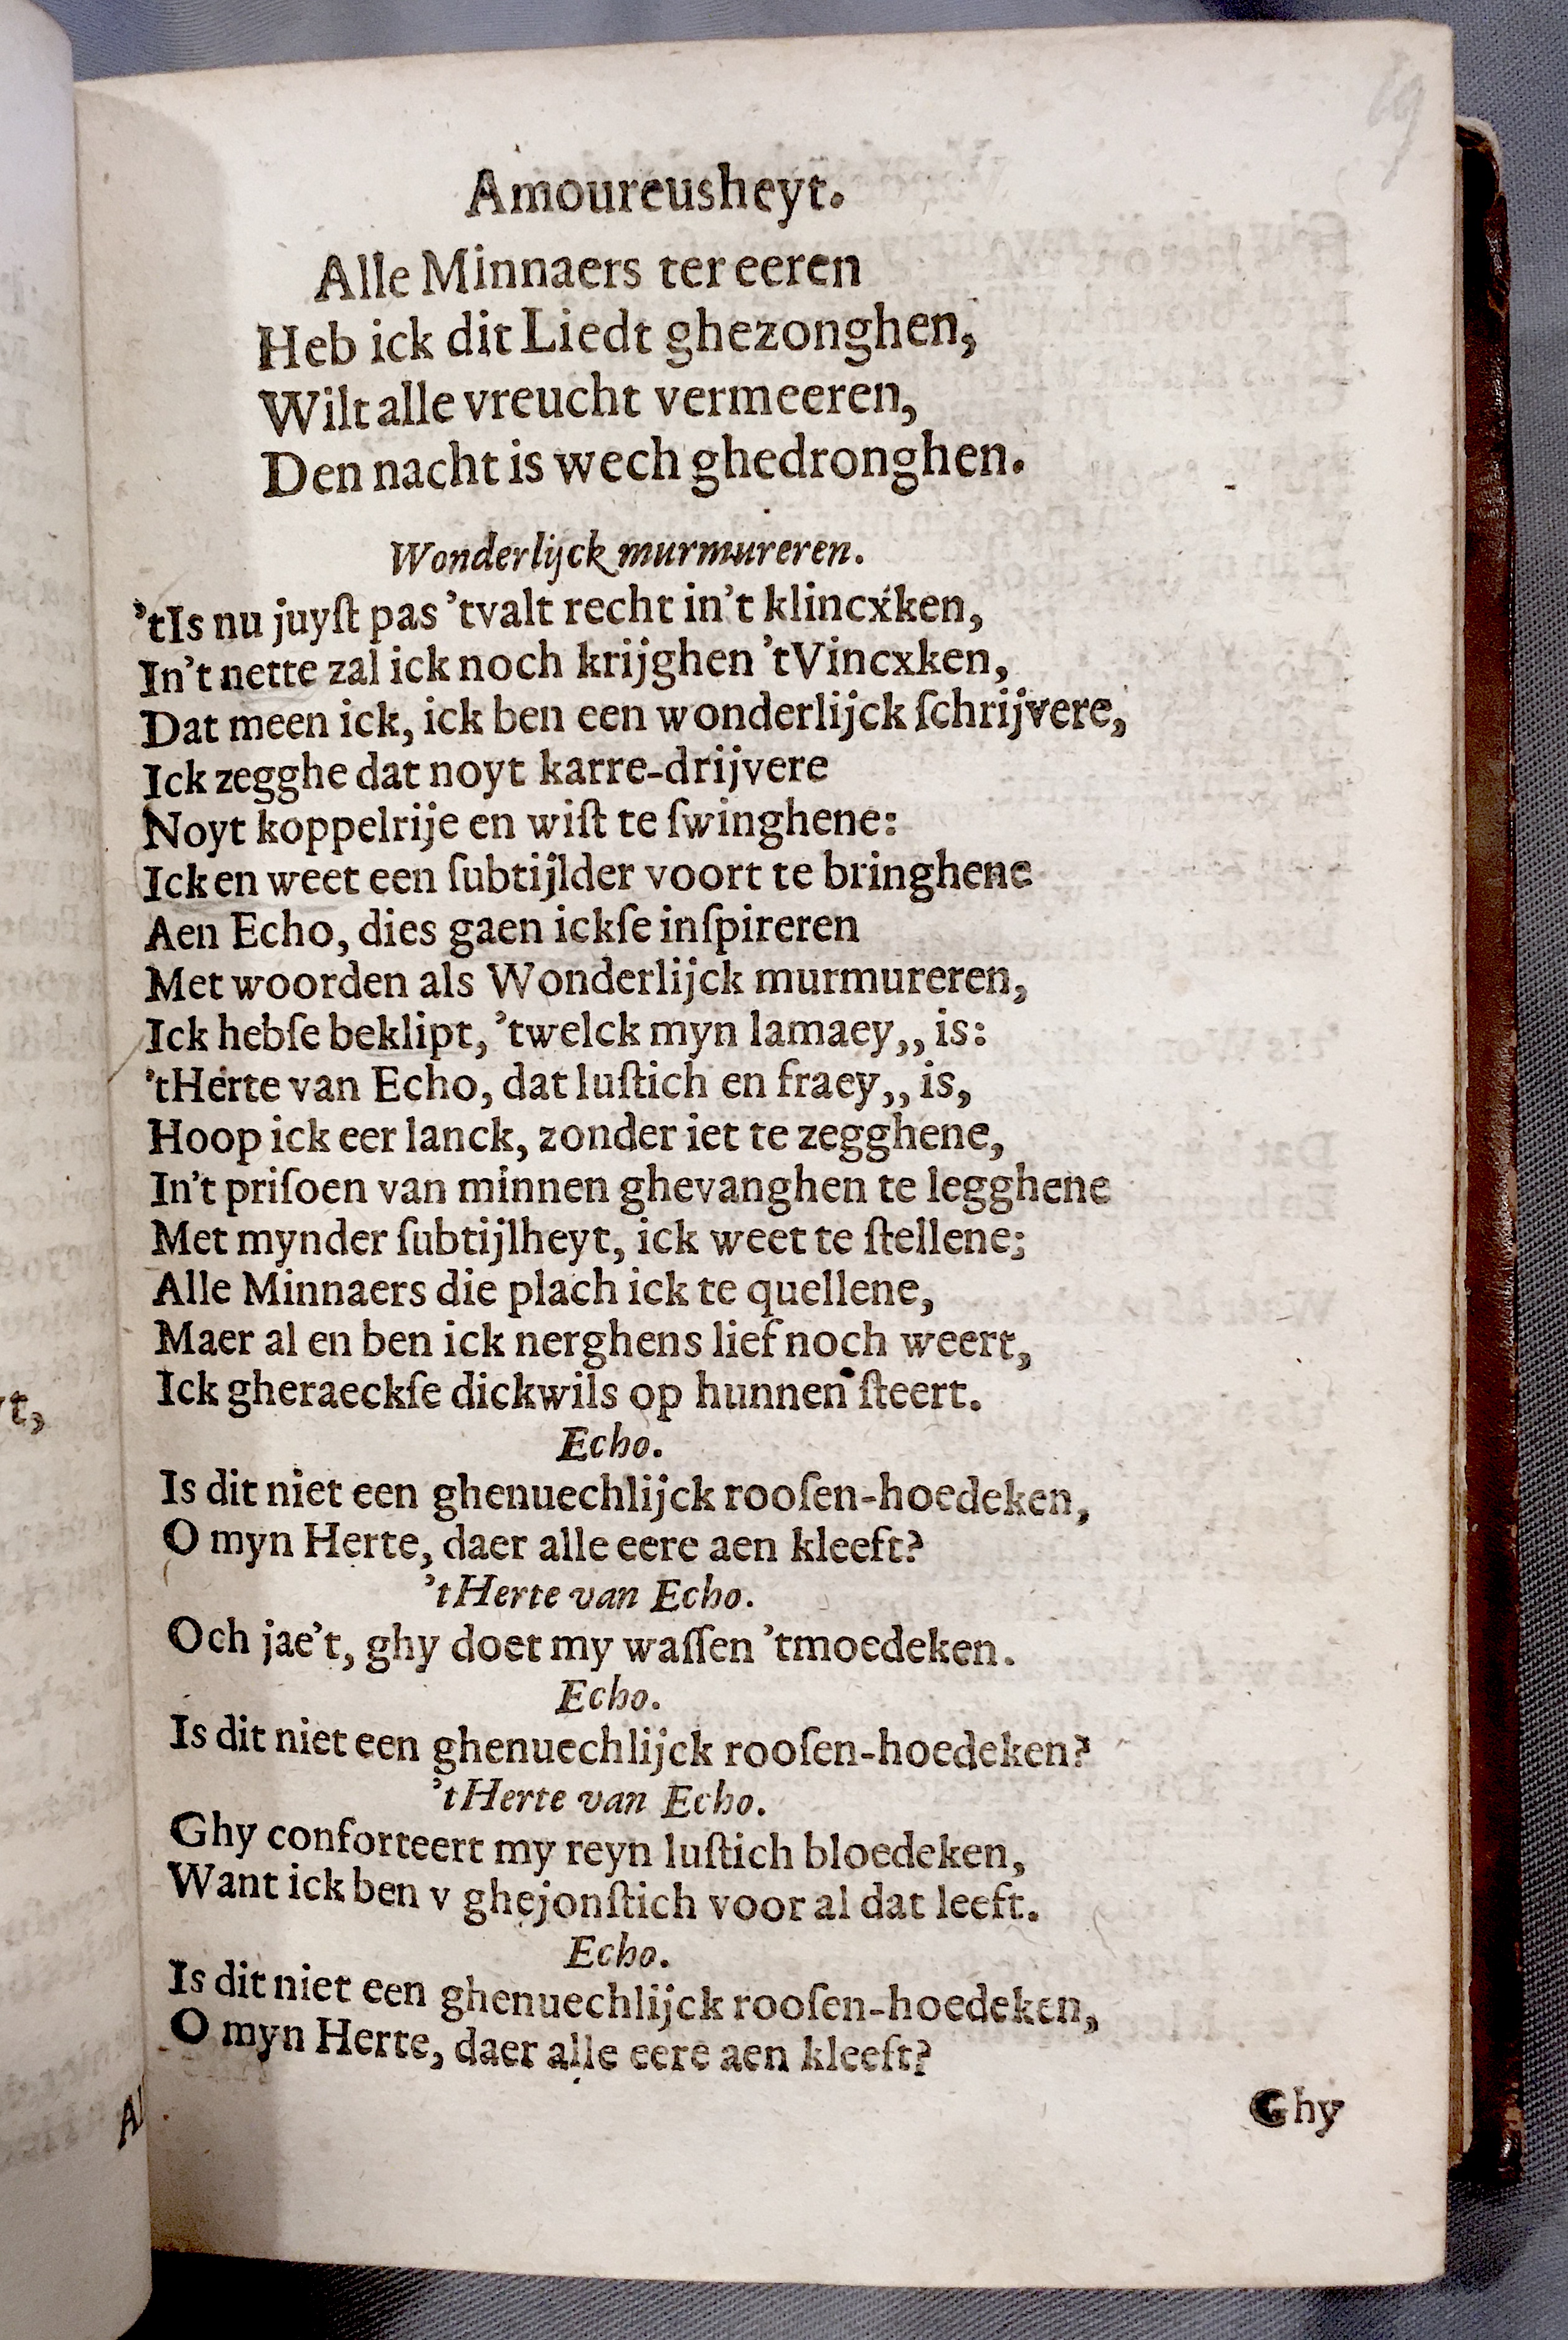 69
Amoureusheyt.
Alle Minnaers ter eeren
Heb ick dit Liedt ghezonghen,
Wilt alle vreucht vermeeren,
Den nacht is wech ghedronghen.
Wonderlijck murmureren.
'tIs nu juyſt pas 'tvalt recht in't klincxken,
In't nette zal ick noch krijghen 'tVincxken,
Dat meen ick, ick ben een wonderlijck ſchrijvere,
Ick zegghe dat noyt karre-drijvere
Noyt koppelrije en wiſt te ſwinghene:
Ick en weet een ſubtijlder voort te bringhene
Aen Echo, dies gaen ickſe inſpireren
Met woorden als Wonderlijck murmureren,
Ick hebſe beklipt, 'twelck myn lamaey,, is:
'tHerte van Echo, dat luſtich en fraey,, is,
Hoop ick eer lanck, zonder iet te zegghene,
In't priſoen van minnen ghevanghen te legghene
Met mynder ſubtijlheyt, ick weet te ſtellene;
Alle Minnaers die plach ick te quellene,
Maer al en ben ick nerghens lief noch weert,
Ick gheraeckſe dickwils op hunnen ſteert.
Echo.
Is dit niet een ghenuechlijck rooſen-hoedeken,
O myn Herte, daer alle eere aen kleeft?
'tHerte van Echo.
Och jae't, ghy doet my waſſen 'tmoedeken.
Echo.
Is dit niet een ghenuechlijck rooſen-hoedeken?
'tHerte van Echo.
Ghy conforteert my reyn luſtich bloedeken,
Want ick ben v ghejonſtich voor al dat leeft.
Echo.
Is dit niet een ghenuechlijck rooſen-hoedeken,
O myn Herte, daer alle eere aen kleeft?
Ghy